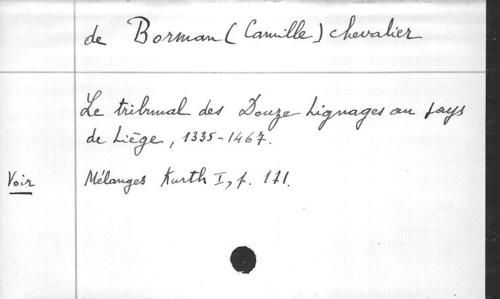 de Borman (Camille) chevalier
Le tribunal des Douze Lignages au pays
de Liège, 1335-1467.
Voir Mélanges Kurth I, p. 171.